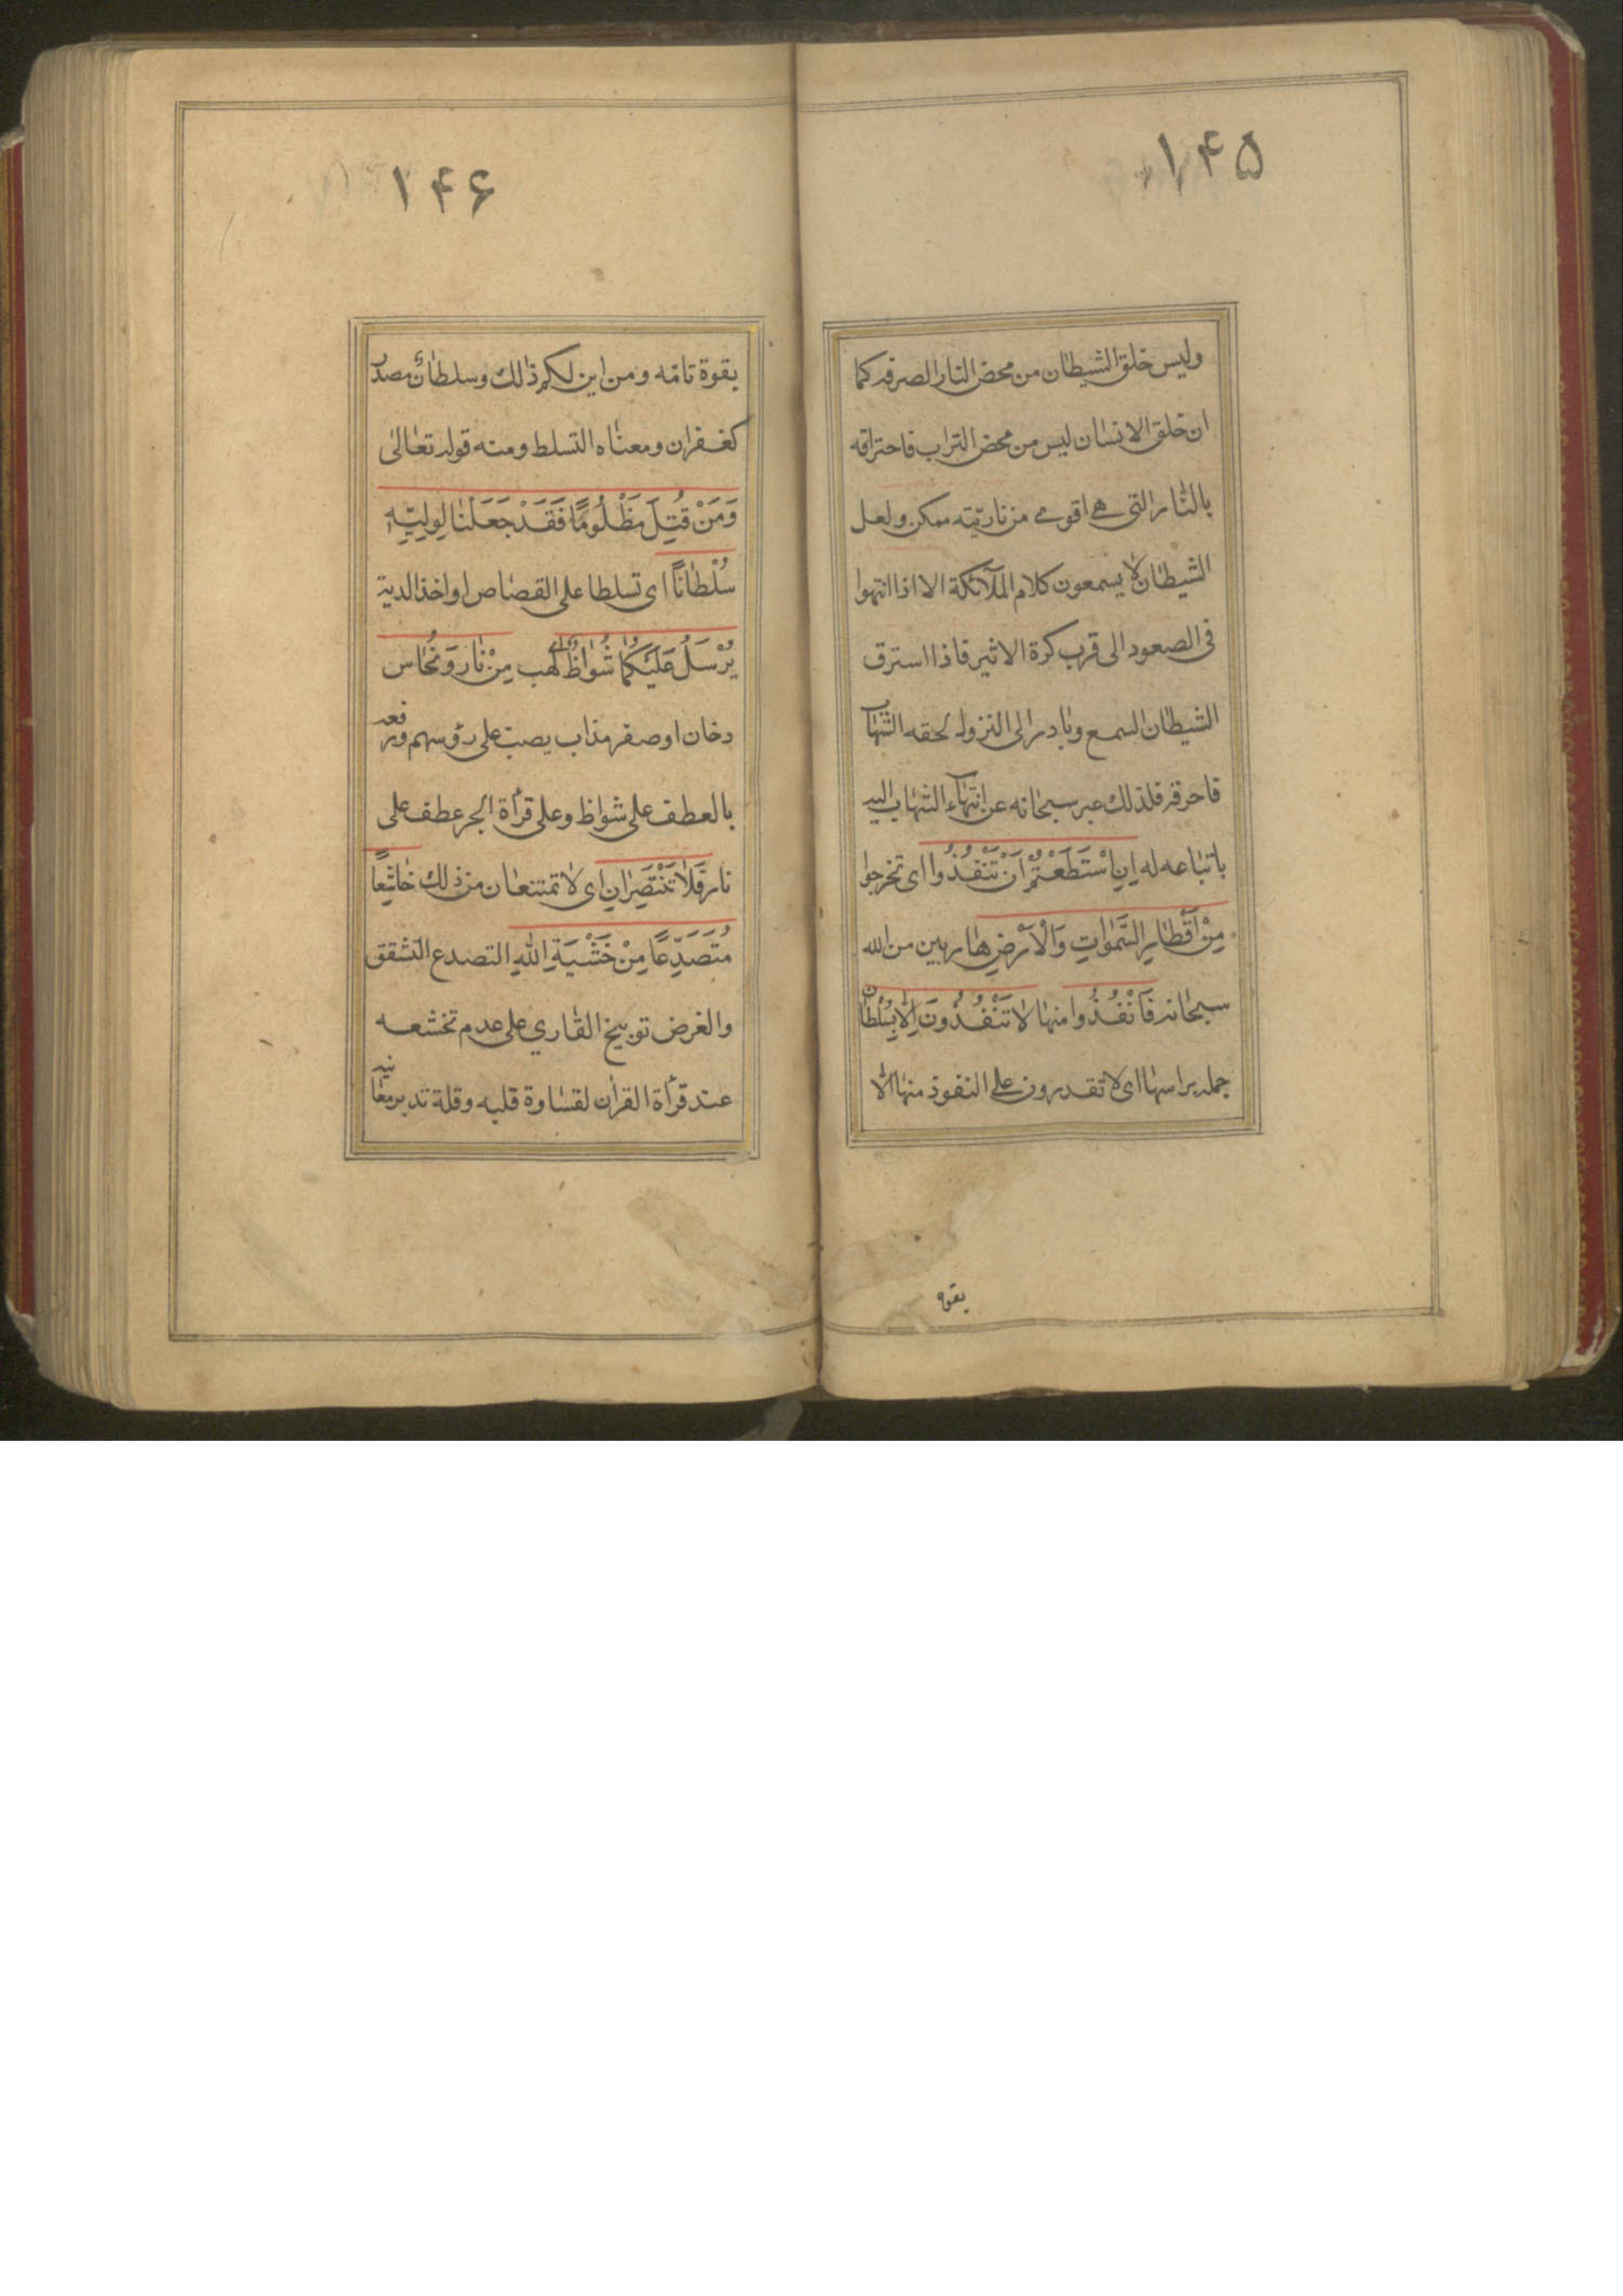 ۱۴۵
وليس خلق الشيطان من محض النار الصرفه كما
ان خلق الانسان ليس من محض التراب فاحتراقه
بالنار التي هي اقوى من ناريته ممكن ولعل
الشيطان لا يسمعون كلام الملآئكة الا اذا انتهوا
في الصعود الى قرب كرة الاثير فاذا استرق
الشيطان السمع وبادر الى النزول لحقه الشهاب
فاحرقه فلذلك عبر سبحانه عن انتهاء الشهاب اليه
باتباعه له اِنِ اسْتَطَعْتُمْ اَنْ تَنْفُذُوا اى تخرجوا
مِنْ اَقْطارِ السَّمٰواتِ وَالْاَرْضِ هاربين من الله
سبحانه فَانْفُذُوا منها لا تَنْفُذُونَ اِلّا بِسُلْطانٍ
جمله براسها اى لا تقدرون على النفوذ منها الّا
بقوة
۱۴۶
بقوة تامّه ومن اين لكم ذلك وسلطان مصدر
كغفران ومعناه التسلط ومنه قوله تعالى
وَمَنْ قُتِلَ مَظْلُومًا فَقَدْ جَعَلْنا لِوَلِيِّهِ
سُلْطانًا اى تسلطا على القصاص او اخذ الدية
يُرْسَلُ عَلَيْكُما شُواظٌ اى لهب مِنْ نار وَنُحاس
دخان او صفر مذاب يصب على رؤسهم ورفعه
بالعطف على شواظ وعلى قرأة الجر عطف على
نار فَلا تَنْتَصِرانِ اى لا تمتنعان من ذلك خاشِعًا
مُتَصَدِّعًا مِنْ خَشْيَةِ اللهِ التصدع التشقق
والغرض توبيخ القاري على عدم تخشعه
عند قرأة القران لقساوة قلبه وقلة تدبر معانيه